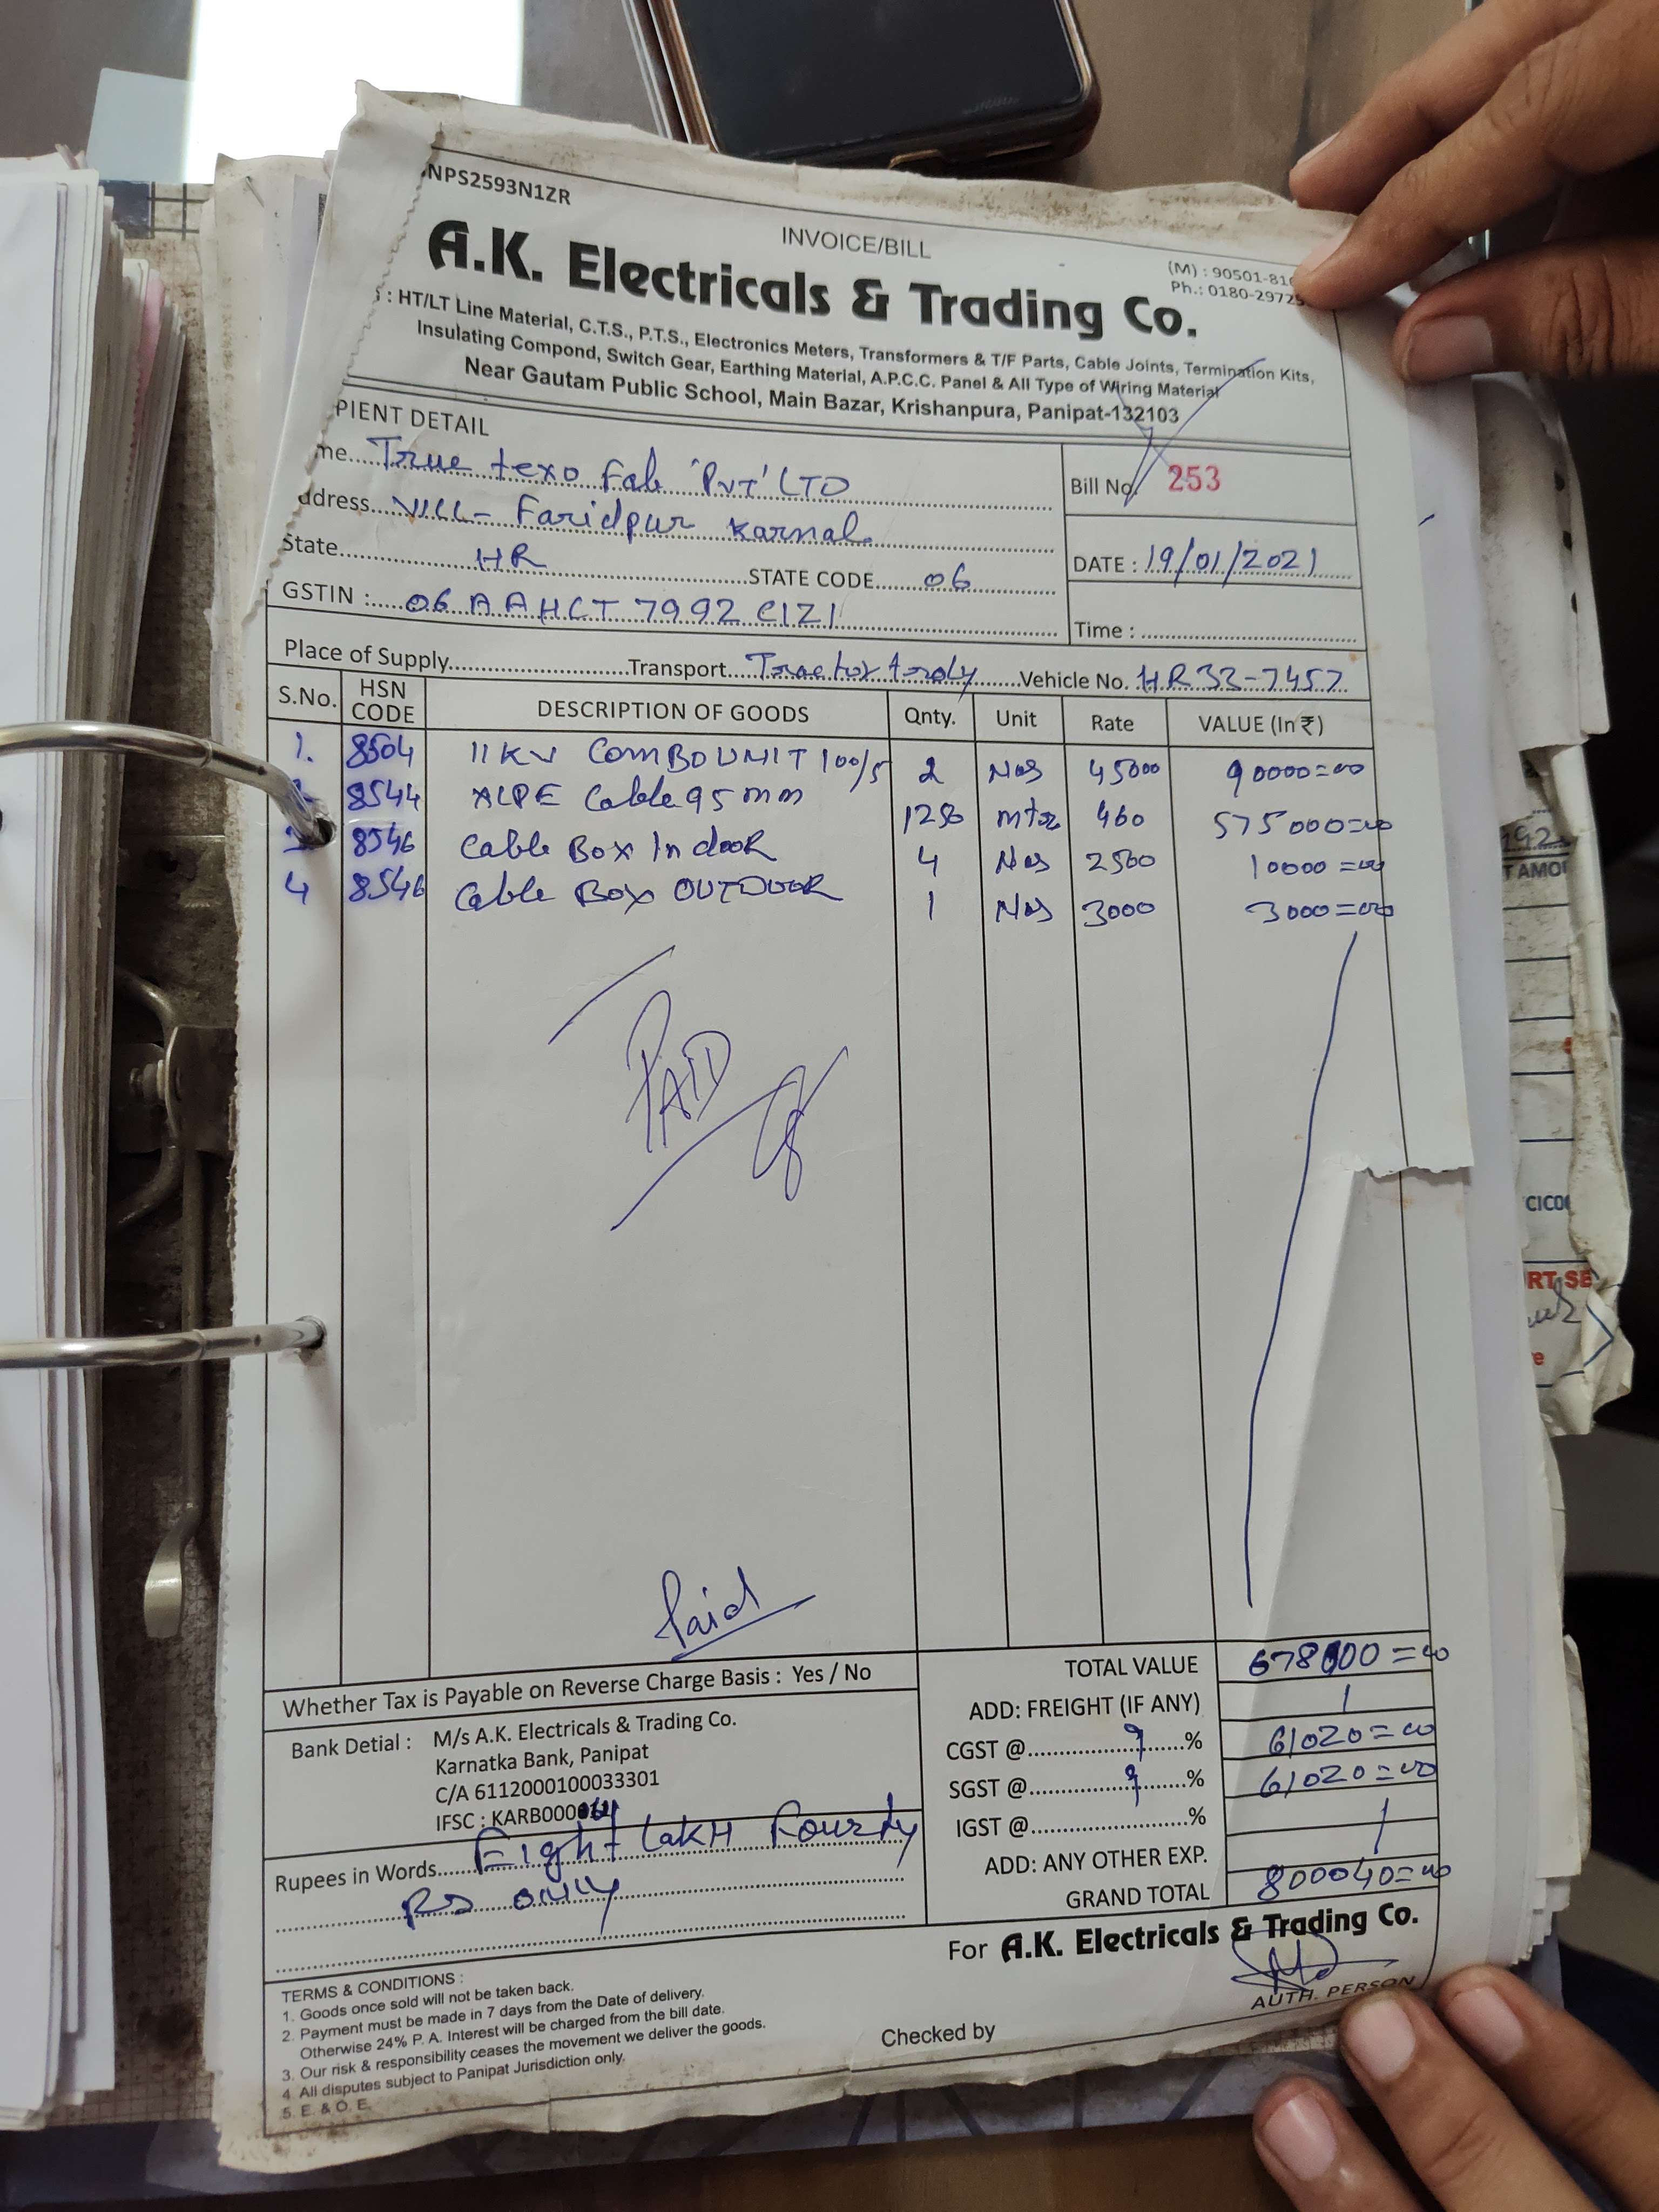 NPS2593N1ZR
INVOICE/BILL
(M) : 90501-81
Ph.: 0180-2972
A.K. Electricals & Trading Co.
: HT/LT Line Material, C.T.S., P.T.S., Electronics Meters, Transformers & T/F Parts, Cable Joints, Termination Kits,
Insulating Compond, Switch Gear, Earthing Material, A.P.C.C. Panel & All Type of Wiring Material
Near Gautam Public School, Main Bazar, Krishanpura, Panipat-132103
PIENT DETAIL
me True texo Fab 'PVT' LTD
Bill No. 253
ddress VILL- Faridpur Karnal.
State HR STATE CODE 06
DATE : 19/01/2021
GSTIN : 06 AAHCT 7992 C1Z1
Time :
Place of Supply Transport Tractor troly Vehicle No. HR33-7457
S.No. HSN CODE DESCRIPTION OF GOODS Qnty. Unit Rate VALUE (In ₹)
1. 8504 11KV COMBO UNIT 100/5 2 Nos 45000 90000=00
8544 XLPE Cable 95mm 1250 mtr 460 575000=00
3 8546 Cable Box Indoor 4 Nos 2500 10000=00
4 8546 Cable Box OUTDOOR 1 Nos 3000 3000=00
PAID
Paid
Whether Tax is Payable on Reverse Charge Basis : Yes / No
Bank Detial : M/s A.K. Electricals & Trading Co.
Karnatka Bank, Panipat
C/A 6112000100033301
IFSC : KARB0000
Rupees in Words Eight Lakh Fourty
Rs only
TOTAL VALUE 678000=00
ADD: FREIGHT (IF ANY) /
CGST @ 9 % 61020=00
SGST @ 9 % 61020=00
IGST @ % /
ADD: ANY OTHER EXP.
GRAND TOTAL 800040=00
For A.K. Electricals & Trading Co.
AUTH. PERSON
Checked by
TERMS & CONDITIONS :
1. Goods once sold will not be taken back.
2. Payment must be made in 7 days from the Date of delivery.
Otherwise 24% P. A. Interest will be charged from the bill date.
3. Our risk & responsibility ceases the movement we deliver the goods.
4 All disputes subject to Panipat Jurisdiction only.
5. E. & O. E.
T AMO
CICO
RT SE